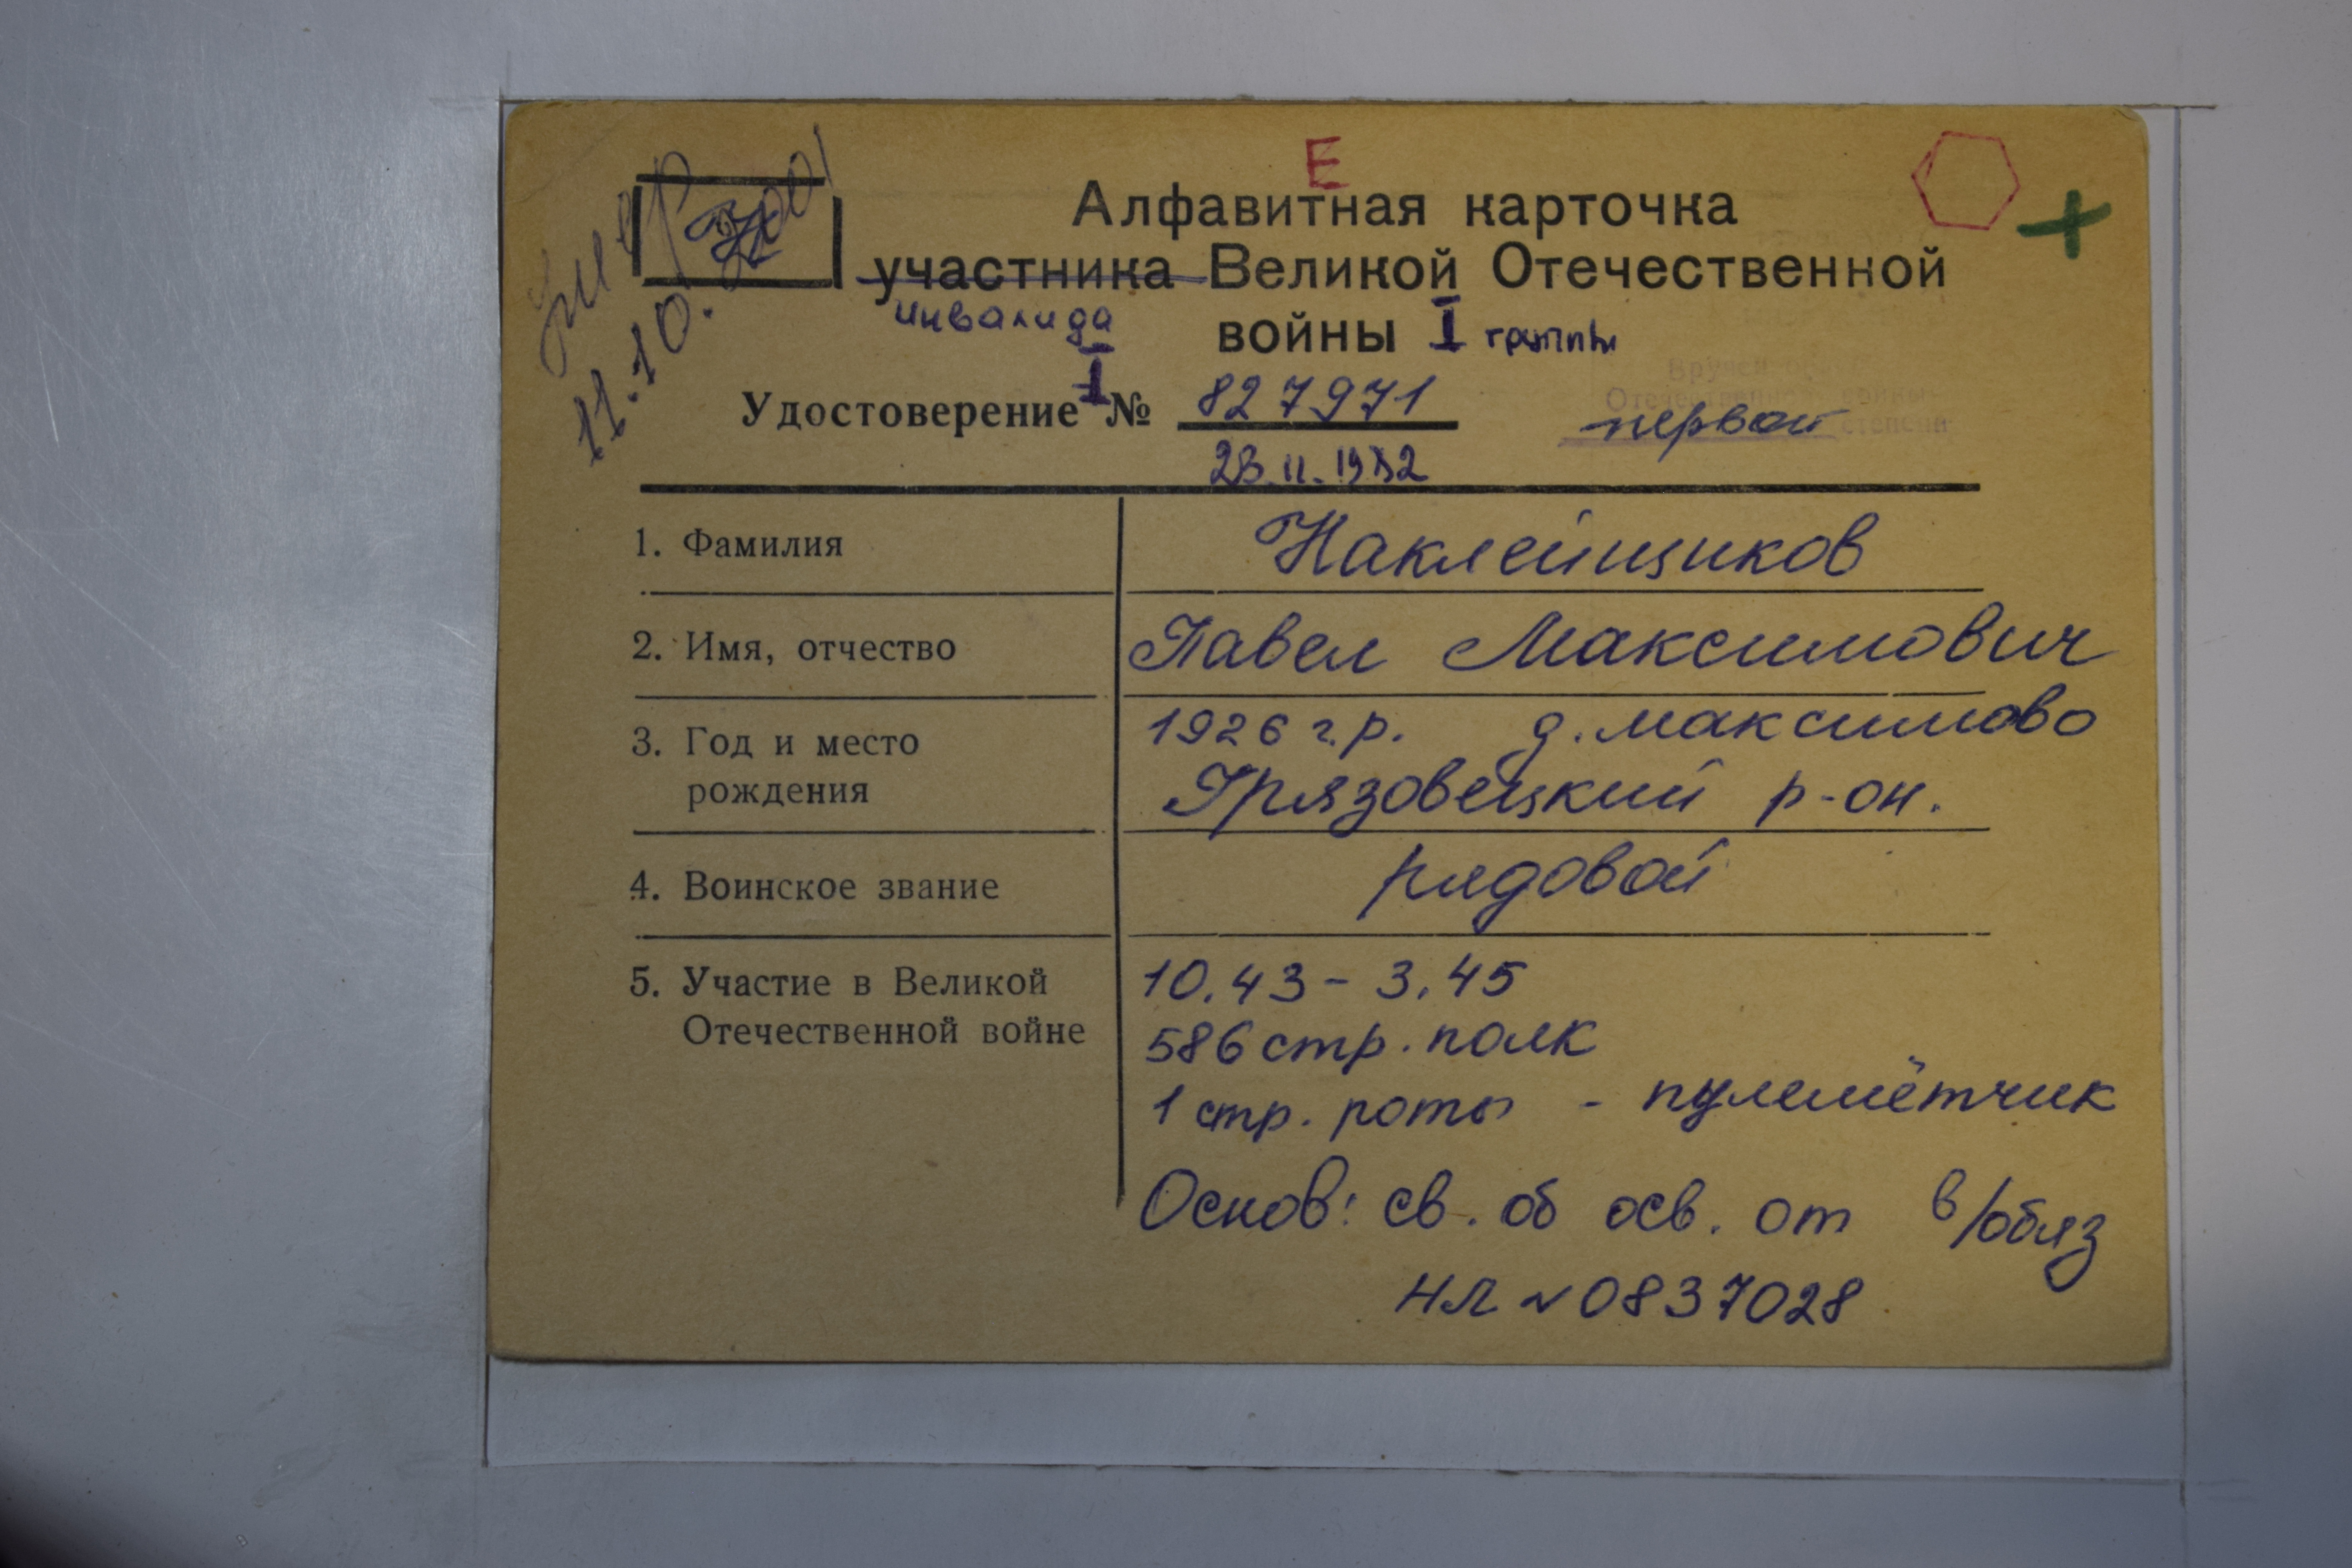 Е
Алфавитная карточка
участника Великой Отечественной
инвалида войны I группы
умер
11.10.2001
Удостоверение I № 827971
Вручен орден
Отечественной войны
первой степени
1. Фамилия Наклейщиков
2. Имя, отчество Павел Максимович
3. Год и место 1926 г.р. д. Максимово
рождения Грязовецкий р-он.
4. Воинское звание рядовой
5. Участие в Великой 10.43 - 3.45
Отечественной войне 586 стр. полк
1 стр. роты - пулемётчик
Основ: св. об осв. от в/обяз
НЛ № 0837028